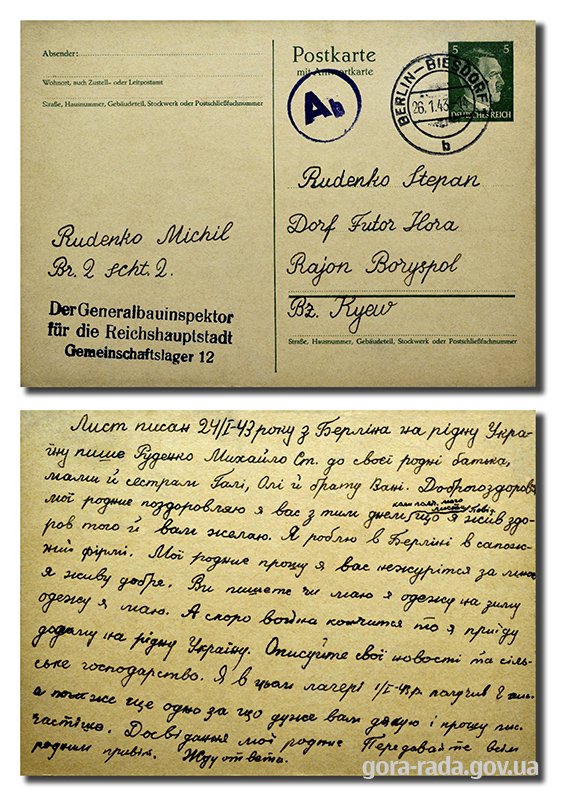 Absender:
Wohnort, auch Zustell- oder Leitpostamt
Straße, Hausnummer, Gebäudeteil, Stockwerk oder Postschließfachnummer
Rudenko Michil
Br. 2 scht. 2.
Der Generalbauinspektor
für die Reichshauptstadt
Gemeinschaftslager 12
Postkarte
mit Antwortkarte
Ab
BERLIN-BIESDORF
26.1.43
b
5 5
DEUTSCHES REICH
Rudenko Stepan
Dorf Futor Hora
Rajon Boryspol
Bz. Kyew
Straße, Hausnummer, Gebäudeteil, Stockwerk oder Postschließfachnummer
Лист писан 24/I-43 року з Берліна на рідну Укра-
їну пише Руденко Михайло Ст. до своєї родні батька,
мами й сестрам Галі, Олі й брату Вані. Доброго здоровя
мої родние поздоровляю я вас з тим днем що я жив здо-
ров того й вам желаю. Я роблю в Берліні в сапож-
ній фірмі. Мої родние прошу я вас нежурітся за мною
я живу добре. Ви пишете чи маю я одежу на зиму
одежу я маю. А скоро война кончится то я приїду
додому на рідну Україну. Описуйте свої новості та сіль-
ське господарство. Я в цьом лагері 1/I-43р. получив 2
а ще одно за що дуже вам дякую і прошу пис.
частішо. Досвідання мої родние Передавайте всім
родним привіт. Жду ответа.
gora-rada.gov.ua